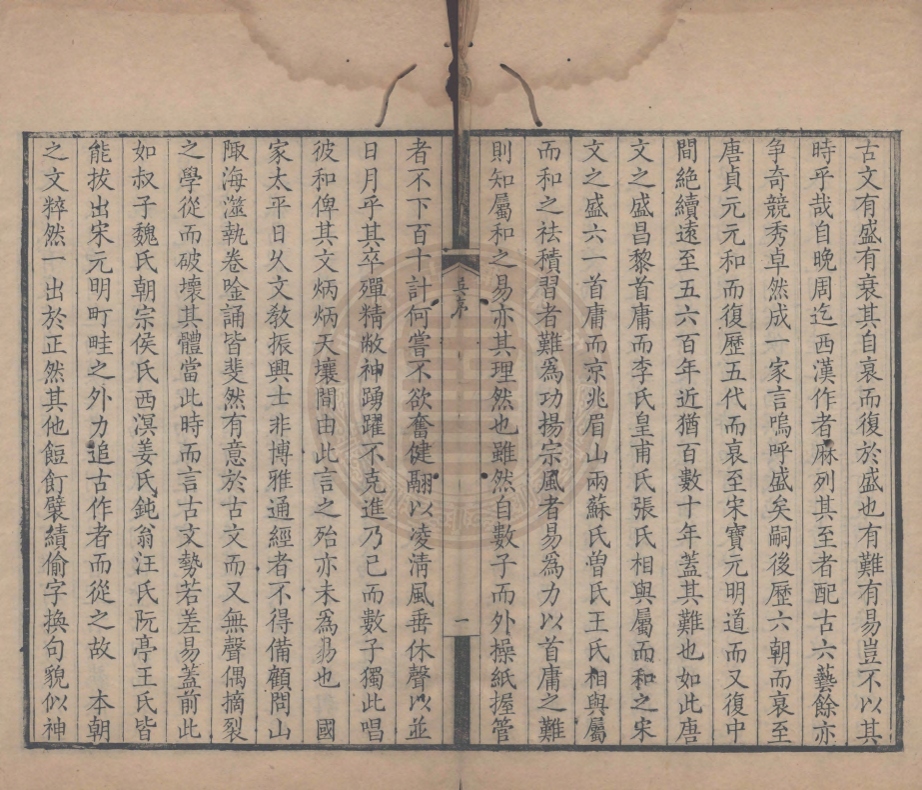 古文有盛有衰其自衰而復於盛也有難有易豈不以其
時乎哉自晚周迄西漢作者麻列其至者配古六藝餘亦
争奇競秀卓然成一家言嗚呼盛矣嗣後歷六朝而衰至
唐貞元元和而復歷五代而衰至宋寶元明道而又復中
間絶續遠至五六百年近猶百數十年蓋其難也如此唐
文之盛昌黎首庸而李氏皇甫氏張氏相與屬而和之宋
文之盛六一首庸而京兆眉山兩蘇氏曽氏王氏相與屬
而和之祛積習者難爲功揚宗風者易爲力以首庸之難
則知屬和之易亦其理然也雖然自數子而外操紙握管
序
一
者不下百十計何嘗不欲奮健翮以凌淸風垂休聲以並
日月乎其卒殫精敝神踴躍不克進乃已而數子獨此唱
彼和俾其文炳炳天壤間由此言之殆亦未爲易也 國
家太平日久文敎振興士非博雅通經者不得備顧問山
陬海澨執卷唫誦皆斐然有意於古文而又無聲偶摘裂
之學從而破壞其體當此時而言古文勢若差易蓋前此
如叔子魏氏朝宗侯氏西溟姜氏鈍翁汪氏阮亭王氏皆
能拔出宋元明町畦之外力追古作者而從之故 本朝
之文粹然一出於正然其他餖飣襞績偷字換句貌似神